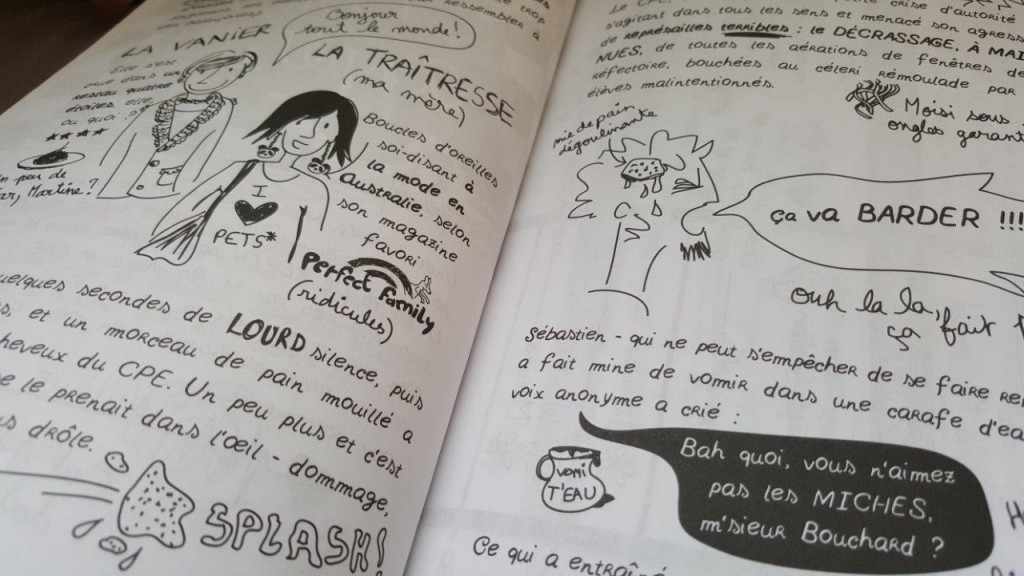 trop
ressembler à
Bonjour
tout le monde!
LA VANIER
LA TRAÎTRESSE
(ma mère)
Elle s'est
crue dans un
resto quatre
étoiles elle,
ou quoi ?
peu de
Martine ?
I
PETS*
Boucles d'oreilles
soi-disant à
la mode en
Australie, selon
son magazine
favori
Perfect Family
(ridicules)
quelques secondes de LOURD silence, puis
et un morceau de pain mouillé a
cheveux du CPE. Un peu plus et c'est
le prenait dans l'œil - dommage,
drôle.
SPLASH!
crise d'autorité
s'agitant dans tous les sens et menacé son
de représailles terribles : le DÉCRASSAGE, À
NUES, de toutes les aérations de fenêtres
réfectoire, bouchées au céleri rémoulade par
élèves malintentionnés.
Moisi sous
ongles
mie de pain
dégoulinante
ça va BARDER !!!!
ouh la la,
ça fait
Sébastien - qui ne peut s'empêcher de se faire
a fait mine de vomir dans une carafe
voix anonyme a crié :
vomi
T'EAU
Bah quoi, vous n'aimez
pas les MICHES,
m'sieur Bouchard ?
Ce qui a